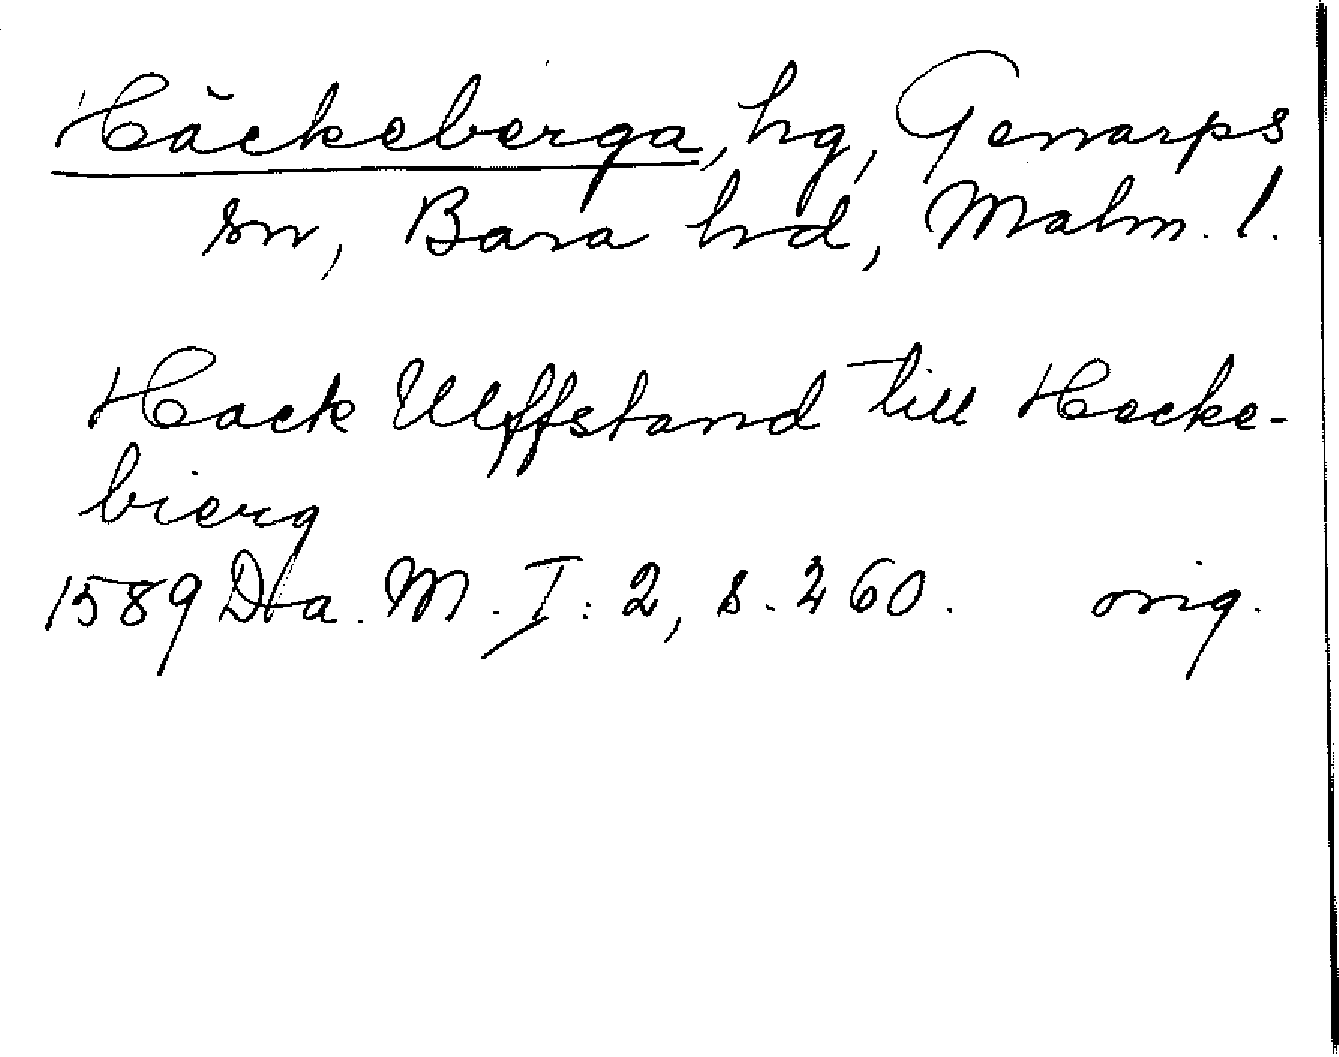 Häckeberga, hg, Genarps
sn, Bara hd, Malm. l.
Hack Ulffstand till Hecke-
bierg
1589 Dra. M. I: 2, s. 260. orig.